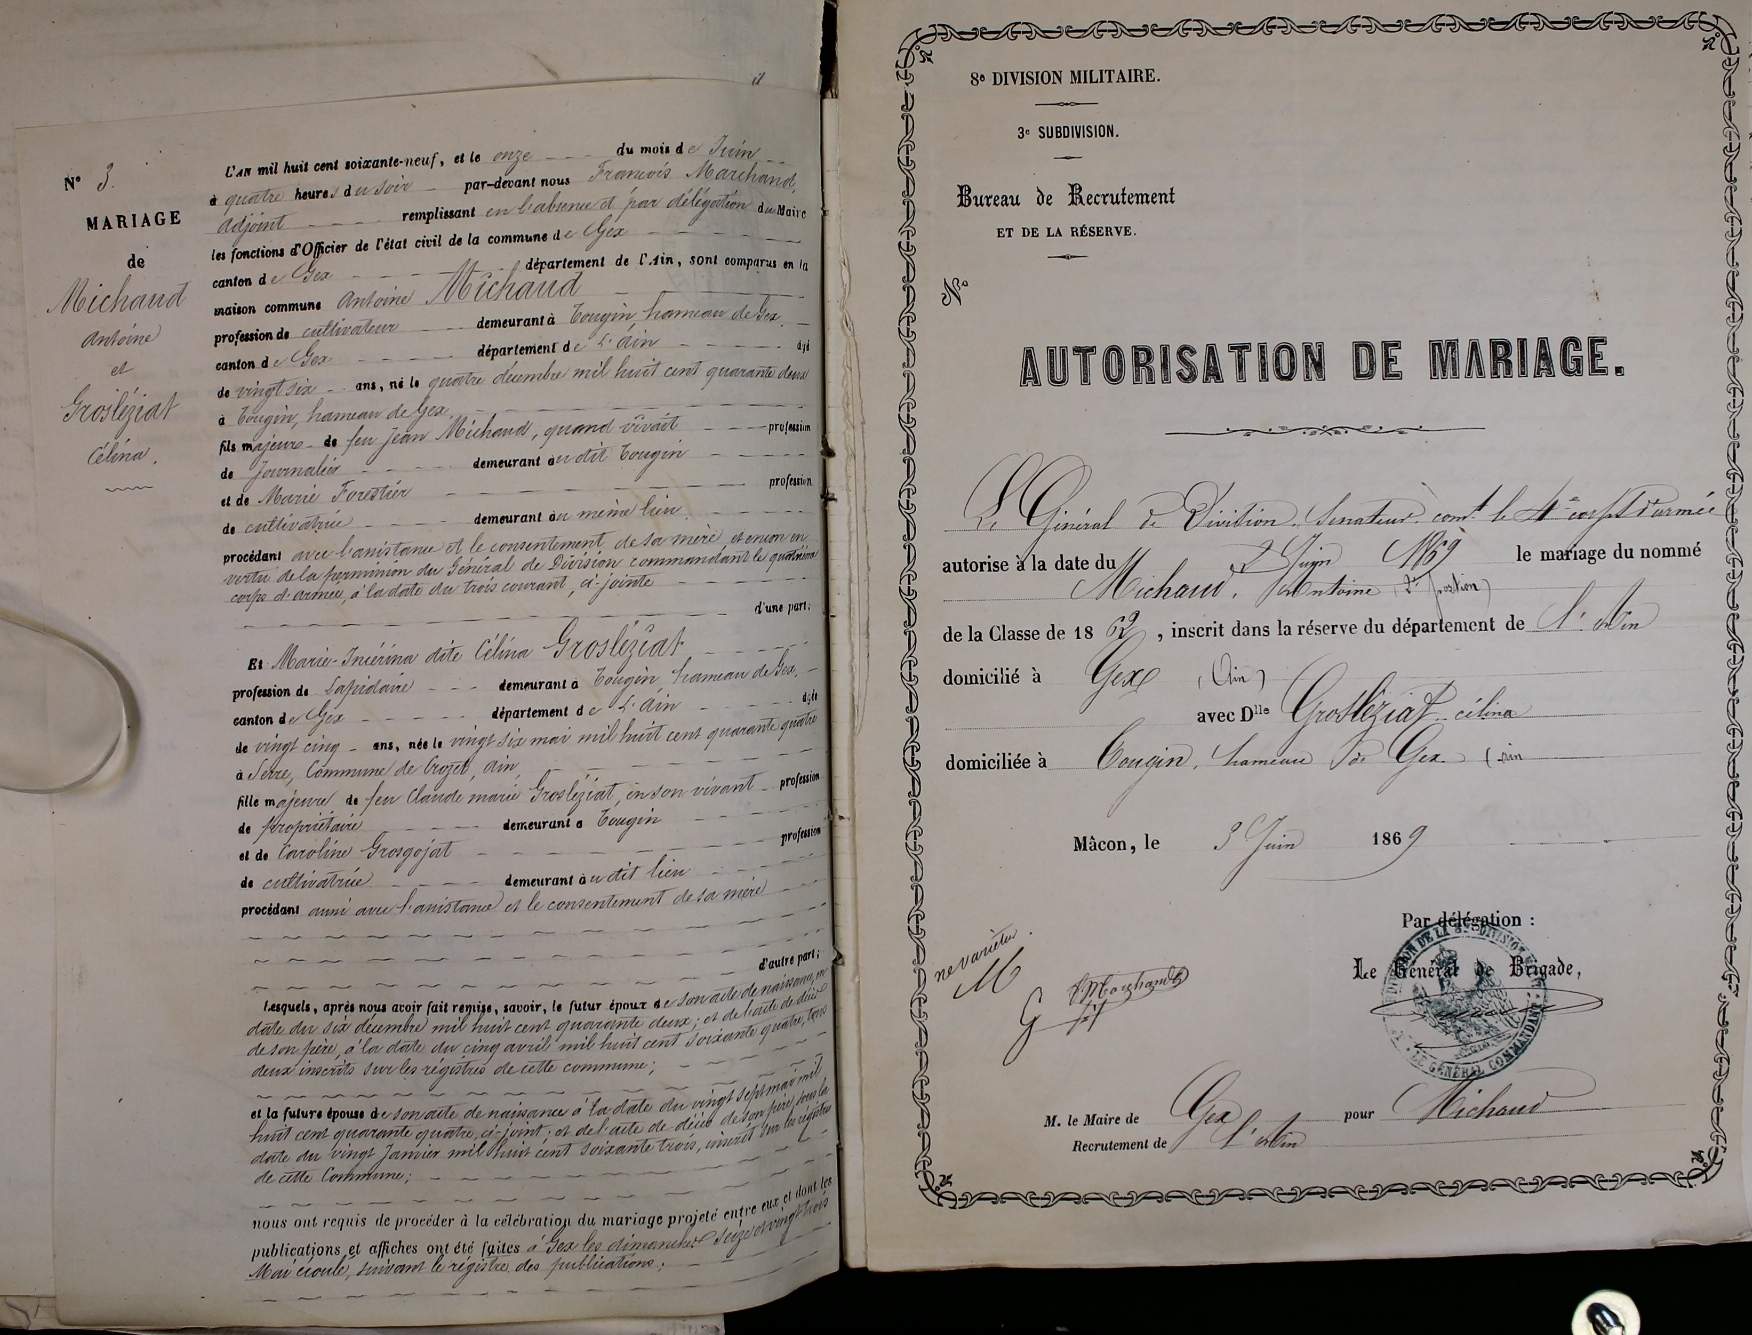 N° 3.
MARIAGE
de
Michaud
Antoine
et
Grosléziat
Célina.
L'AN mil huit cent soixante-neuf, et le onze du mois de Juin
à quatre heures du soir par-devant nous François Marchand,
adjoint remplissant en l'absence et par délégation du Maire
les fonctions d'Officier de l'état civil de la commune de Gex
canton de Gex département de l'Ain, sont comparus en la
maison commune Antoine Michaud
profession de cultivateur demeurant à Tougin, hameau de Gex,
canton de Gex département de L'Ain âgé
de vingt six ans, né le quatre décembre mil huit cent quarante deux
à Tougin, hameau de Gex,
fils majeur de feu Jean Michaud, quand vivait profession
de Journalier demeurant au dit Tougin
et de Marie Forestier profession
de cultivatrice demeurant au même lieu
procédant avec l'assistance et le consentement de sa mère, et encore en
vertu de la permission du Général de Division commandant le quatrième
corps d'armée, à la date du trois courant, ci-jointe
d'une part;
Et Marie- dite Célina Grosléziat
profession de Lapidaire demeurant à Tougin, hameau de Gex,
canton de Gex département de L'Ain âgée
de vingt cinq ans, née le vingt six mai mil huit cent quarante quatre
à Serre, Commune de Crozet, Ain,
fille majeure de feu Claude Marie Grosléziat, en son vivant profession
de propriétaire demeurant à Tougin
et de Caroline Grosgojat profession
de cultivatrice demeurant au dit lieu
procédant aussi avec l'assistance et le consentement de sa mère
d'autre part;
Lesquels, après nous avoir fait remise, savoir, le futur époux de son acte de naissance, en
date du six décembre mil huit cent quarante deux; et de l'acte de décès
de son père, à la date du cinq avril mil huit cent soixante quatre, tous
deux inscrits sur les régistres de cette commune;
et la future épouse de son acte de naissance à la date du vingt sept mai mil
huit cent quarante quatre, ci-joint; et de l'acte de décès de son père, sous la
date du vingt Janvier mil huit cent soixante trois, inscrit sur les régistres
de cette Commune;
nous ont requis de procéder à la célébration du mariage projeté entre eux, et dont les
publications et affiches ont été faites à Gex les dimanches seize et vingt trois
Mai écoulé, suivant le régistre des publications;
8e DIVISION MILITAIRE.
3e SUBDIVISION.
Bureau de Recrutement
ET DE LA RÉSERVE.
N°
AUTORISATION DE MARIAGE.
Le Général de Division, Senateur, comt le 4e corps d'armée
autorise à la date du 2 Juin 1869 le mariage du nommé
Michaud, Antoine (2e portion)
de la Classe de 1862, inscrit dans la réserve du département de l'Ain
domicilié à Gex (Ain)
avec Dlle Grosléziat célina
domiciliée à Tougin, hameau de Gex (Ain
Mâcon, le 3 Juin 1869
Par délégation :
Le Général de Brigade,
LE GÉNÉRAL COMMANDANT
ne varietur.
M
G
f. Marchand
M. le Maire de Gex pour Michaud
Recrutement de l'Ain